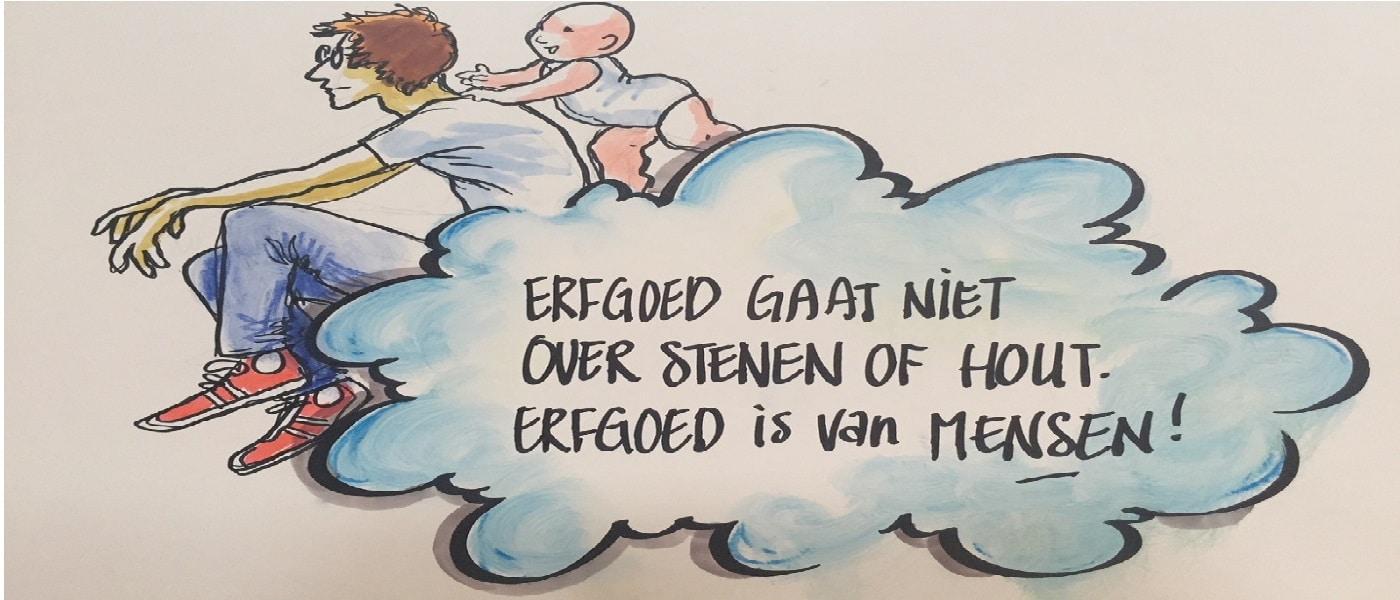 ERFGOED GAAT NiET
OVER STENEN OF HOUT.
ERFGOED is van MENSEN!